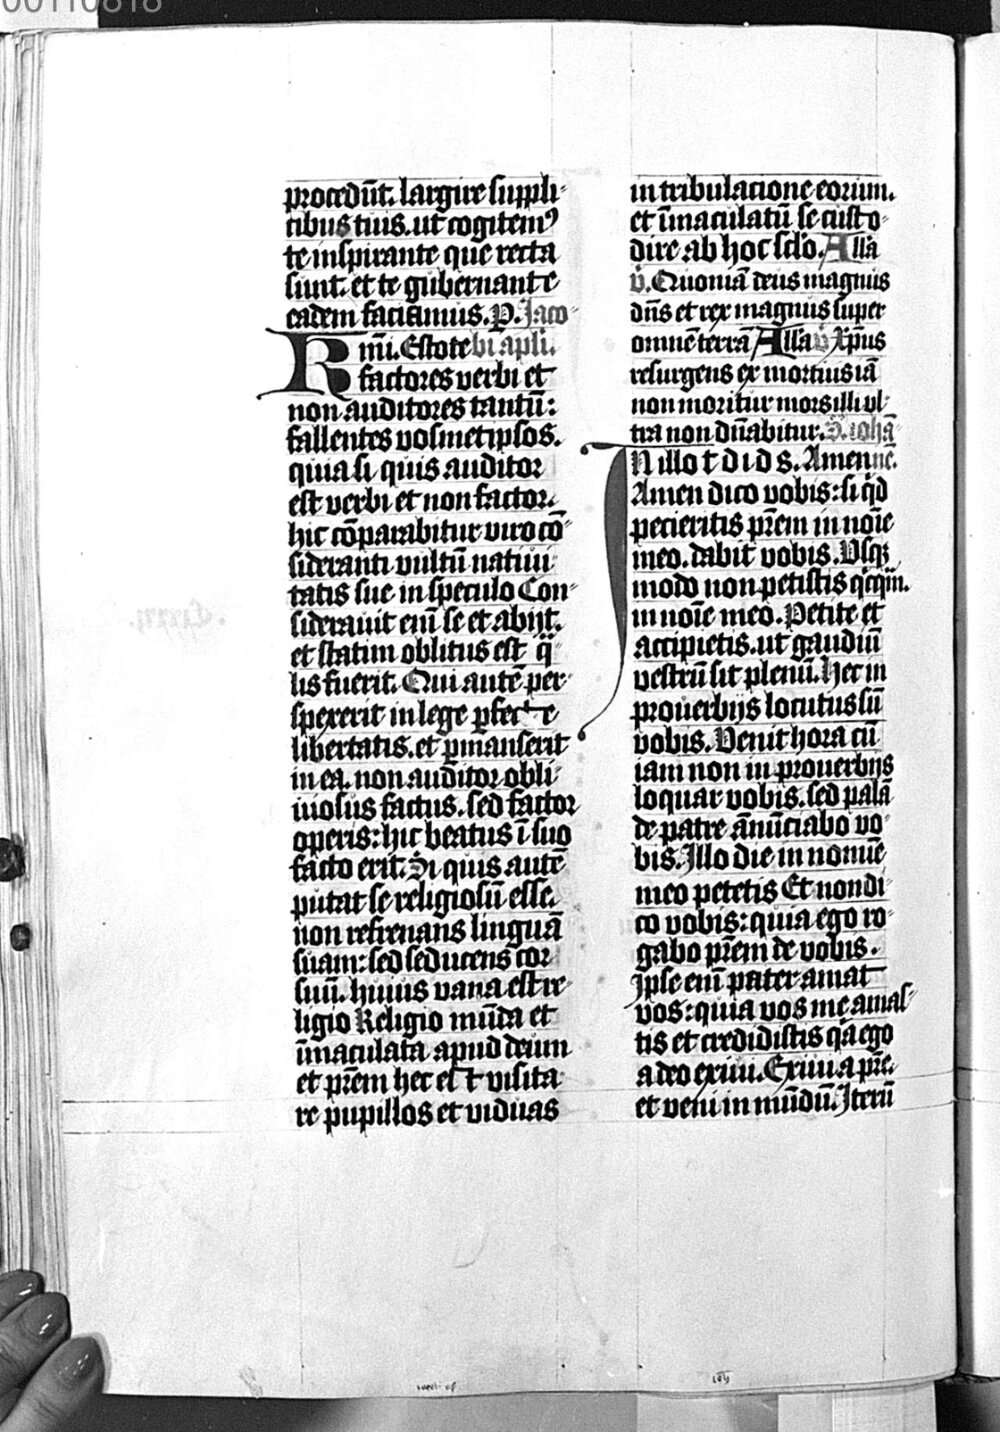 00110818
procedūt. largire suppli-
cibus tuis. ut cogitemꝰ
te inspirante que recta
sunt. et te gubernante
eadem faciamus. P. Jaco-
Rmi. Estote bi apli.
factores verbi et
non auditores tantū:
fallentes vosmetipsos.
quia si quis auditor
est verbi et non factor.
hic cōparabitur viro cō-
sideranti vultū natiui-
tatis sue in speculo Con-
siderauit eni̅ se et abijt.
et statim oblitus est q̈-
lis fuerit. Qui autē per-
spexerit in lege ꝑfecte
libertatis. et ꝑmanserit
in ea. non auditor obli-
uiosus factus. sed factor
operis: hic beatus ī suo
facto erit. Si quis autē
putat se religiosū esse.
non refrenans linguā
suam: sed seducens cor
suū. huius vana est re-
ligio Religio mūda et
īmaculata apud deum
et pr̄em hec est visita-
re pupillos et viduas
in tribulacione eorum.
et īmaculatū se custo-
dire ab hoc sclo. Alla
v. Quoniā deus magnus
dn̄s et rex magnus super
omnē terrā Alla v Xp̄us
resurgens ex mortuis iā
non moritur mors illi vl-
tra non dn̄abitur. S. iohā
In illo t d i d s. Amen ne.
Amen dico vobis: si qd
pecieritis pr̄em in noīe
meo. dabit vobis. Usqꝫ
modo non petistis qcq̄m.
in noīe meo. Petite et
accipietis. ut gaudiū
vestrū sit plenū. Hec in
prouerbijs locutus sū
vobis. Venit hora cū
iam non in prouerbijs
loquar vobis. sed palā
de patre ānūciabo vo-
bis. Illo die in nomīe
meo petetis Et non di-
co vobis: quia ego ro-
gabo pr̄em de vobis.
Ipse eni̅ pater amat
vos: quia vos me amas-
tis et credidistis qa ego
a deo exiui. Exiui a pr̄e.
et veni in mūdū. Iterū